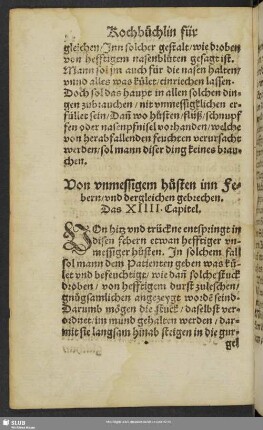 Kochbüchlin für
gleichen / Jnn solcher gestalt / wie droben
von hefftigem nasenblüten gesagt ist.
Mann sol jm auch für die nasen halten /
vnnd alles was kület / einriechen lassen.
Doch sol das haupt in allen solchen din-
gen zubrauchen / nit vnmessigklichen er-
füllet sein / Dañ wo hüsten / flüß / schnupf
fen oder nasenpfnisel vorhanden / welche
von herabfallenden feuchten verursacht
werden / sol mann diser ding keines brau-
chen.
Von vnmessigem hüsten inn Fe-
bern / vnd dergleichen gebrechen.
Das XIIII. Capitel.
VOn hitz vnd trückne entspringt in
disen febern etwan hefftiger vn-
messiger hüsten. Jn solchem fall
sol mann dem Patienten geben was kü-
let vnd befeuchtigt / wie dañ solche stuck
droben / von hefftigem durst zuleschen /
gnügsamlichen angezeygt worden seind.
Darumb mögen die stuck / daselbst ver-
ordnet / im mund gehalten werden / dar-
mit sie langsam hinab steigen in die gur-
gel
SLUB